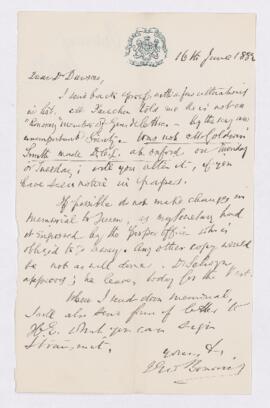 16th June 1882
Dear Dr Dawson,
I send back proof with a few alterations
in list. M. Faucher told me he is not an
"Honorary" member of - by the way an
unimportant Society. Was not Mr Goldwin
Smith made D.C.L. at Oxford on Monday
or Tuesday; will you alter it, if you
have seen notice in papers.
If possible do not make changes in
Memorial to Queen, as my Secretary had
it engrossed by the proper officer who is
obliged to be away. Any other copy would
be not as well done. Dr Selwyn
approves; he leaves today for the West.
When I send down memorial,
I will also send form of letter to
H.E. which you can sign
&
yours &c,